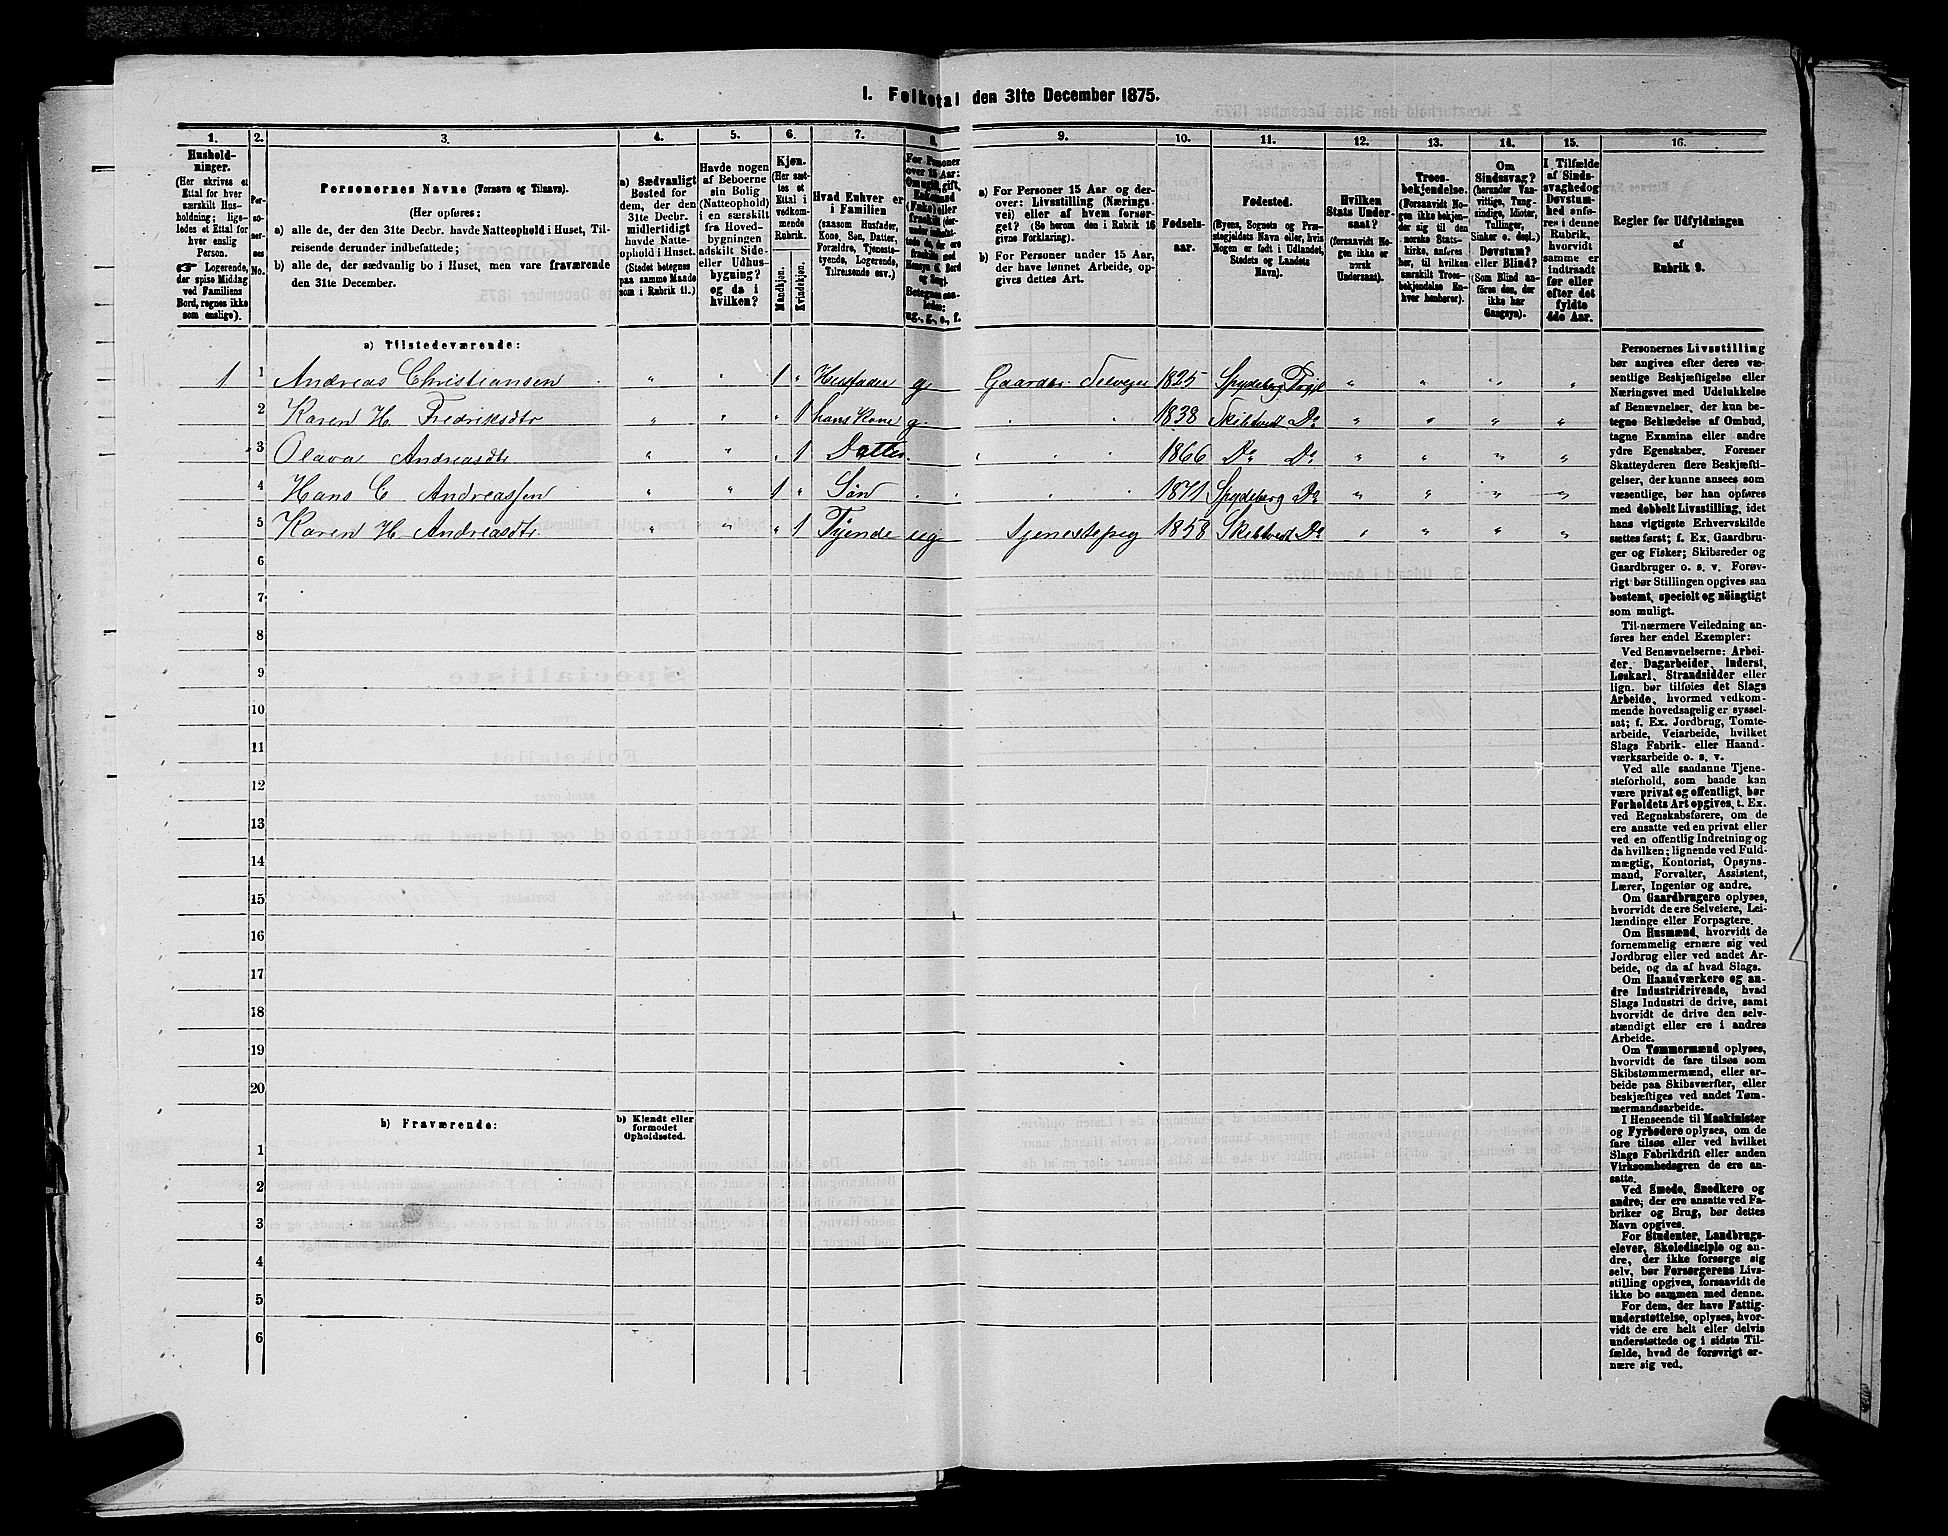 1. Folketal den 31te December 1875.
1. 2. 3. 4. 5. 6. 7. 8. 9. 10. 11. 12. 13. 14. 15. 16.
Husholdninger.
(Her skrives et
Ettal for hver
særskilt Husholdning;
ligeledes et Ettal for
hver enslig
Person.
☛ Logerende,
der spise Middag
ved Familiens
Bord, regnes ikke
som enslige).
Personernes No.
Personernes Navne (Fornavn og Tilnavn).
(Her opføres:
a) alle de, der den 31te Decbr. havde Natteophold i Huset, Tilreisende derunder indbefattede;
b) alle de, der sædvanlig bo i Huset, men vare fraværende
den 31te December.
a) Sædvanligt
Bosted for
dem, der den
31te Decbr.
midlertidigt
havde Natteophold i Huset.
(Stedet betegnes
paa samme Maade
som i Rubrik 11.)
Havde nogen
af Beboerne
sin Bolig
(Natteophold)
i en særskilt
fra Hovedbygningen
adskilt Side-
eller Udhusbygning?
og da i
hvilken?
Kjøn.
(Her sættes et
Ettal i
vedkommende
Rubrik.
Mandkjøn.
Kvindekjøn.
Hvad Enhver er
i Familien
(saasom Husfader,
Kone, Søn, Datter,
Forældre, Tjenestetyende, Logerende,
Tilreisende osv.)
For Personer
over 15 Aar:
Om ugift, gift,
Enkemand
(Enke) eller
fraskilt
Betegnes saaledes:
ug., g., e., f.
a) For Personer 15 Aar og derover: Livsstilling (Næringsvei) eller af hvem forsørget? (Se herom den i Rubrik 16
givne Forklaring).
b) For Personer under 15 Aar,
der have lønnet Arbeide, opgives dettes Art.
Fødselsaar.
Fødested.
(Byens, Sognets og Præstegjeldets Navn eller, hvis
Nogen er født i Udlandet,
Stedets og Landets
Navn).
Hvilken
Stats Undersaat?
(forsaavidt Nogen ikke er
norsk
Undersaat).
Troesbekjendelse.
(Forsaavidt Nogen ikke bekjender sig til den
norske Statskirke, anføres
her, til hvilken
særskilt Troesbekjendelse Enhver henhører).
Om
Sindssvag?
(herunder Vanvittige, Tungsindige, Idioter,
Tullinger,
Sinker o. desl.).
Døvstum?
eller Blind?
(Som Blind anføres den, der
ikke har
Gangsyn).
I Tilfælde
af Sindssvaghed og
Døvstumhed anføres i denne
Rubrik,
hvorvidt
samme er
indtraadt
før eller
efter det
fyldte
4de Aar.
Regler for Udfyldningen
af
Rubrik 9.
a) Tilstedeværende:
1 1 Andreas Christiansen " " 1 " Husfader g. Gaardbr. Selveier 1825 Spydeberg Prgjl " " " "
2 Karen H. Fredriksdtr " " " 1 hans Kone g. 1838 Skibtvedt Do " " " "
3 Olava Andreasdtr " " " 1 Datter 1866 Do Do " " " "
4 Hans C. Andreassen " " 1 " Søn 1871 Spydeberg Do " " " "
5 Karen H. Andreasdtr " " " 1 Tyende ug Tjenestepig 1858 Skibtvedt Do " " " "
6
7
8
9
10
11
12
13
14
15
16
17
18
19
20
b) Fraværende:
b) Kjendt eller
formodet
Opholdssted.
1
2
3
4
5
6
Personernes Livsstilling
bør angives efter deres væsentlige Beskjæftigelse eller
Næringsvei med Udelukkelse
af Benævnelser, der kun betegne Beklædelse af Ombud,
tagne Examina eller andre
ydre Egenskaber. Forener
Skatteyderen flere Beskjæftigelser, der kunne ansees som
væsentlige, bør han opføres
med dobbelt Livsstilling, idet
hans vigtigste Erhvervskilde
sættes først; f. Ex. Gaardbruger og Fisker; Skibsreder og
Gaardbruger o. s. v. Forøvrigt bør Stillingen opgives saa
bestemt, specielt og nøiagtigt
som muligt.
Til nærmere Veiledning anføres her endel Exempler:
Ved Benævnelserne: Arbeider, Dagarbeider, Inderst,
Løskarl, Strandsidder eller
lign. bør tilføies det Slags
Arbeide, hvormed vedkommende hovedsagelig er sysselsat; f. Ex. Jordbrug, Tomtearbeide, Veiarbeide, hvilket
Slags Fabrik- eller Haandværksarbeide o. s. v.
Ved alle saadanne Tjenesteforhold, som baade kan
være privat og offentligt, bør
Forholdets Art opgives, t. Ex.
ved Regnskabsførere, om de
ere ansatte ved en privat eller
ved en offentlig Indretning og
da hvilken; lignende ved Fuldmægtig, Kontorist, Opsynsmand, Forvalter, Assistent,
Lærer, Ingeniør og andre.
Om Gaardbrugere oplyses,
hvorvidt de ere Selveiere, Leilændinge eller Forpagtere.
Om Husmænd, hvorvidt de
fornemmelig ernære sig ved
Jordbrug eller ved andet Arbeide, og da af hvad Slags.
Om Haandværkere og andre Industridrivende, hvad
Slags Industri de drive, samt
hvorvidt de drive den selvstændigt eller ere i andres
Arbeide.
Om Tømmermænd oplyses,
hvorvidt de fare tilsøs som
Skibstømmermænd, eller arbeide paa Skibsværfter, eller
beskjæftiges ved andet Tømmermandsarbeide.
I Henseende til Maskinister
og Fyrbødere oplyses, om de
fare tilsøs eller ved hvilket
Slags Fabrikdrift eller anden
Virksomhedsgren de ere ansatte.
Ved Smede, Snedkere og
andre, der ere ansatte ved Fabriker og Brug, bør dettes
Navn opgives.
For Studenter, Landbrugselever, Skoledisciple og andre, der ikke forsørge sig
selv, bør Forsørgerens Livsstilling opgives, forsaavidt de
ikke bo sammen med denne.
For dem, der have Fattigunderstøttelse, oplyses, hvorvidt de ere helt eller delvis
understøttede og i sidste Tilfælde, hvad de forøvrigt ernære sig ved.